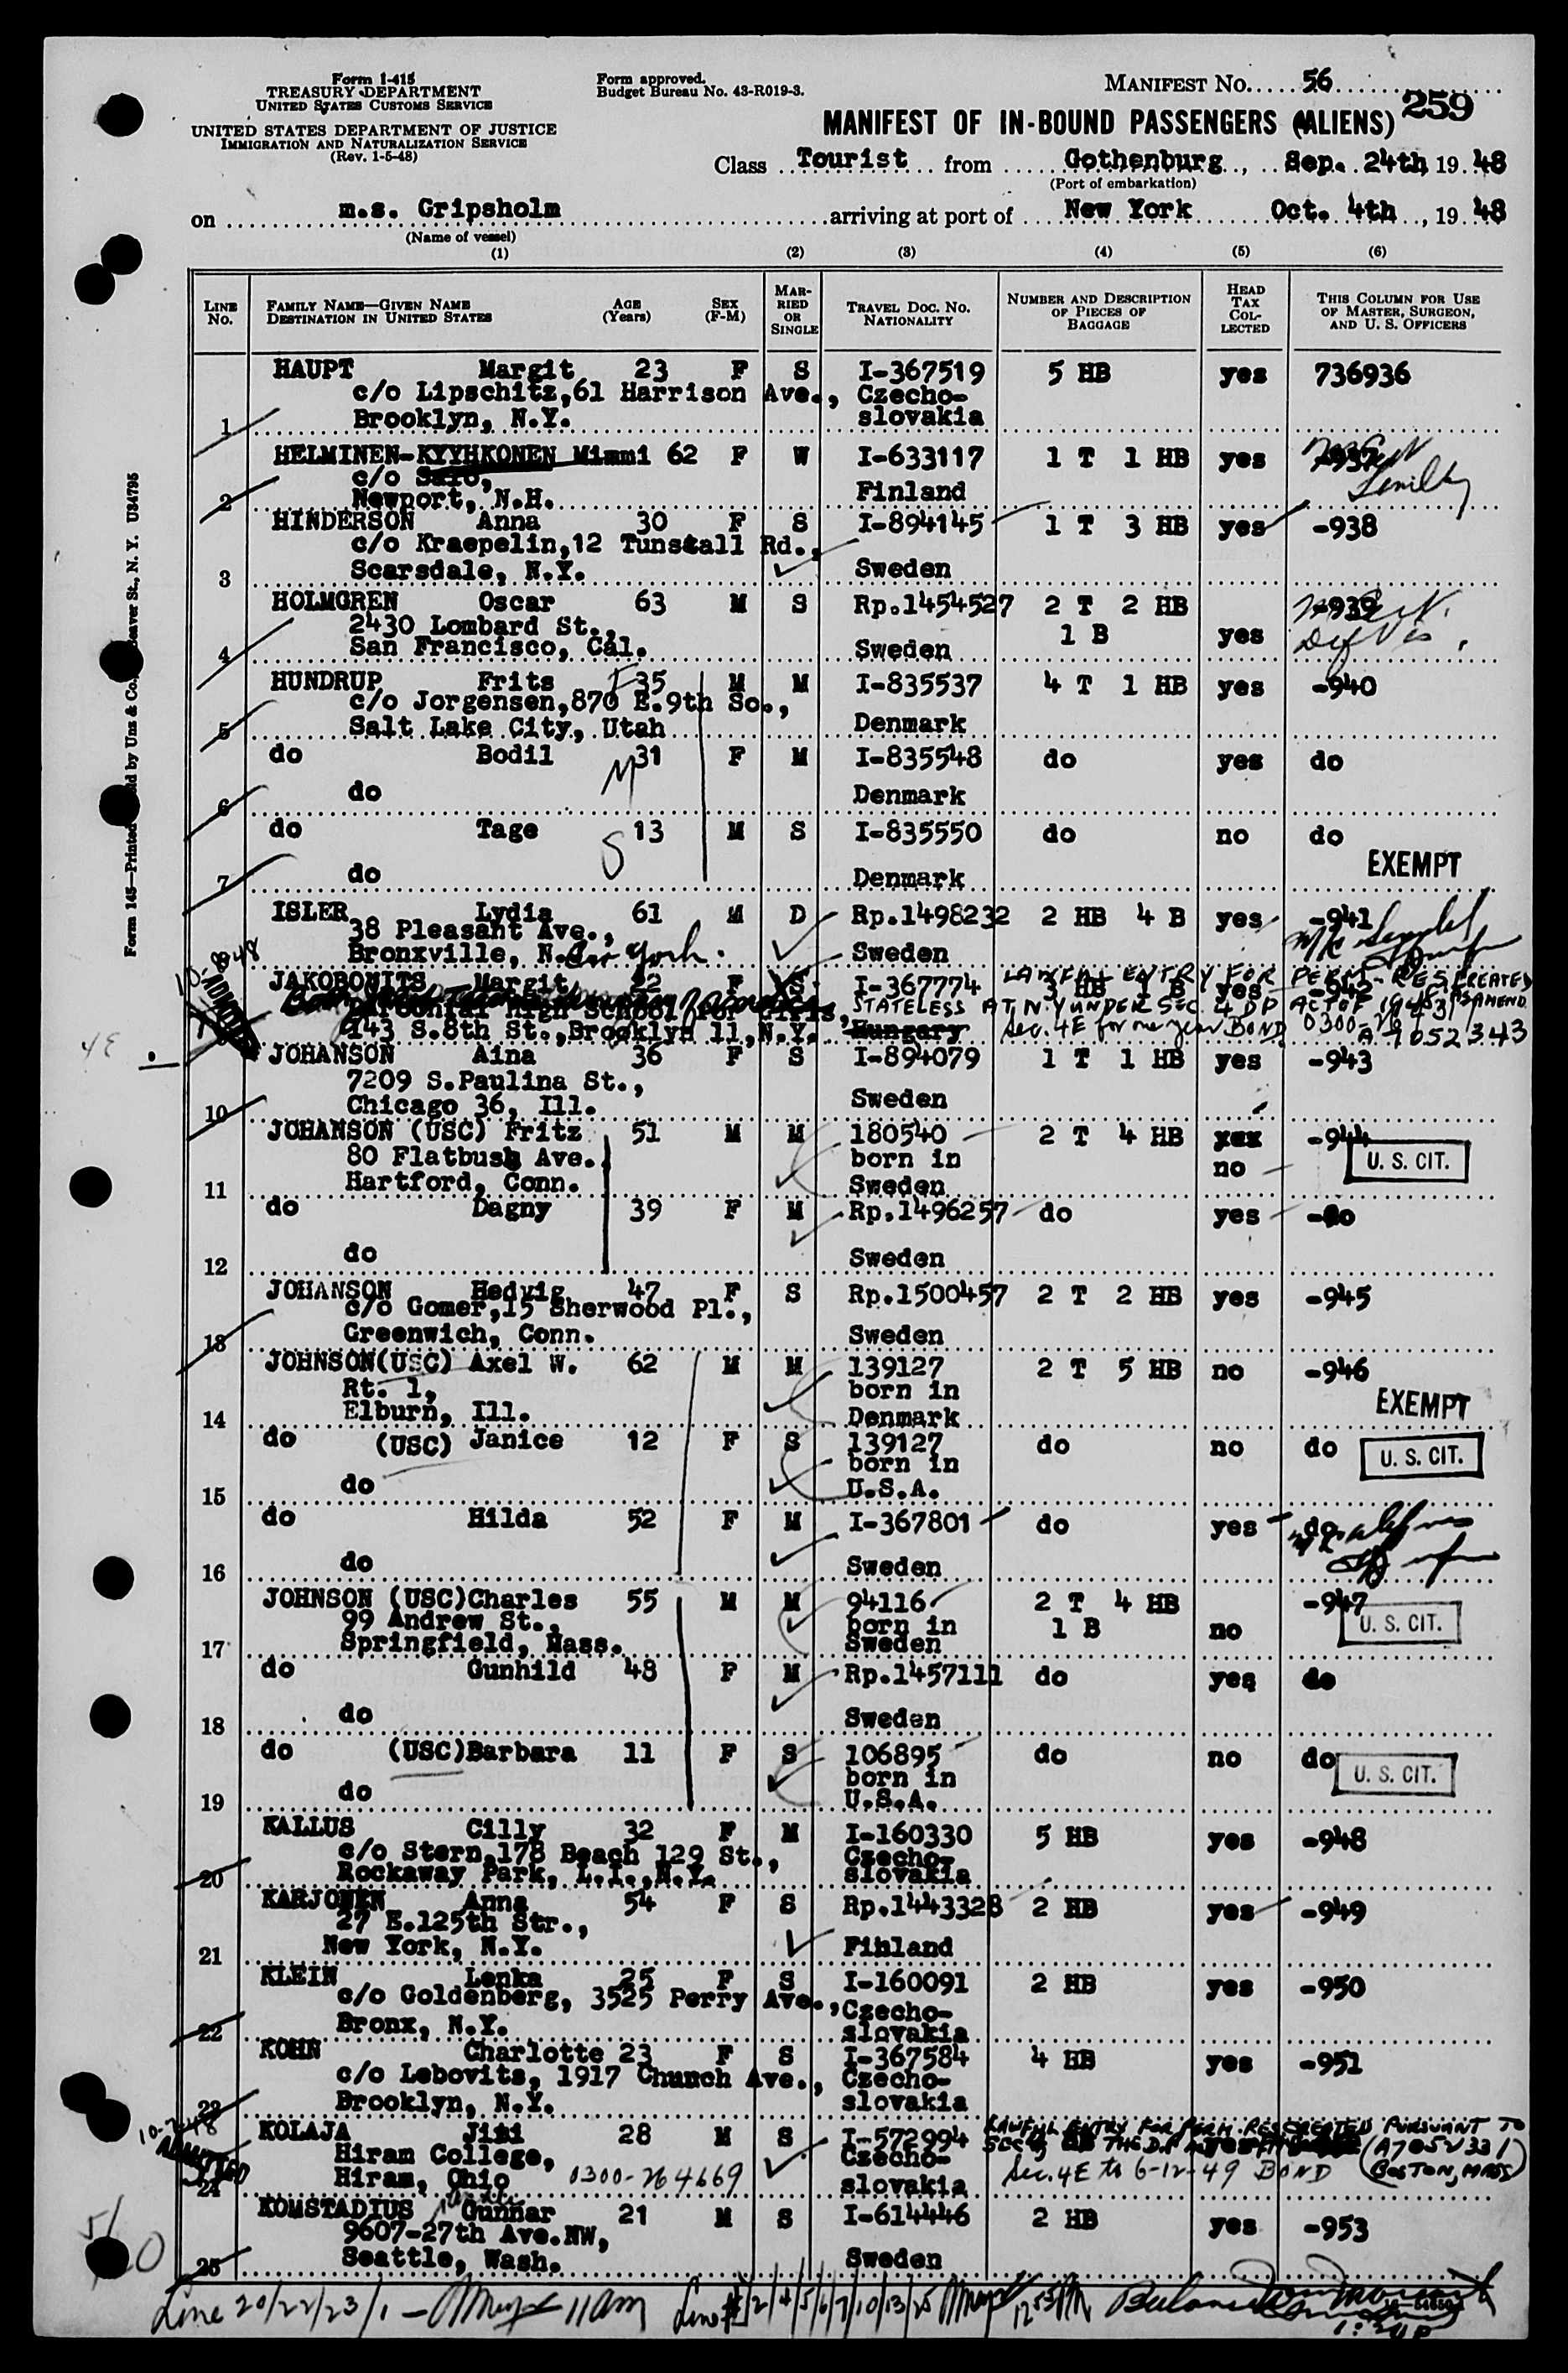 Form I-415
TREASURY DEPARTMENT
UNITED STATES CUSTOMS SERVICE
UNITED STATES DEPARTMENT OF JUSTICE
IMMIGRATION AND NATURALIZATION SERVICE
(Rev. 1-5-48)
Form approved.
Budget Bureau No. 43-R019-3.
MANIFEST No. 56
259
MANIFEST OF IN-BOUND PASSENGERS (ALIENS)
Class Tourist from Gothenburg, Sep. 24th, 19 48
(Port of embarkation)
on m.s. Gripsholm arriving at port of New York Oct. 4th, 19 48
(Name of vessel)
(1) (2) (3) (4) (5) (6)
LINE No. FAMILY NAME—GIVEN NAME DESTINATION IN UNITED STATES AGE (Years) SEX (F-M) MARRIED OR SINGLE TRAVEL DOC. No. NATIONALITY NUMBER AND DESCRIPTION OF PIECES OF BAGGAGE HEAD TAX COLLECTED THIS COLUMN FOR USE OF MASTER, SURGEON, AND U. S. OFFICERS
HAUPT Margit 23 F S I-367519 5 HB yes 736936
c/o Lipschitz,61 Harrison Ave., Czecho-
1 Brooklyn, N.Y. slovakia
HELMINEN-KYYHKONEN Miami 62 F W I-633117 1 T 1 HB yes
c/o
2 Newport, N.H. Finland
HINDERSON Anna 30 F S I-894145 1 T 3 HB yes -938
c/o Kraepelin,12 Tunstall Rd.,
3 Scarsdale, N.Y. Sweden
HOLMGREN Oscar 63 M S Rp.1454527 2 T 2 HB -939
2430 Lombard St., 1 B yes
4 San Francisco, Cal. Sweden
HUNDRUP Frits 35 M M I-835537 4 T 1 HB yes -940
c/o Jorgensen,870 E.9th So.,
5 Salt Lake City, Utah Denmark
do Bodil 31 F M I-835548 do yes do
M
6 do Denmark
do Tage 13 M S I-835550 do no do
S EXEMPT
7 do Denmark
ISLER Lydia 61 M D Rp.1498232 2 HB 4 B yes -941
38 Pleasant Ave.,
Bronxville, N. York. Sweden
JAKOBOVITS Margit 22 F S I-367774 3 HB 1 B yes -942
LAWFUL ENTRY FOR PERM. RES. CREATED
Parochial High School for Girls, STATELESS AT N.Y UNDER SEC. 4 DP ACT OF 1948, AS AMEND
143 S.8th St.,Brooklyn 11,N.Y. Hungary Sec. 4E for one year BOND
A 7052343
4E
JOHANSON Aina 36 F S I-894079 1 T 1 HB yes -943
7209 S.Paulina St.,
10 Chicago 36, Ill. Sweden
JOHANSON (USC) Fritz 51 M M 180540 2 T 4 HB xxx -944
80 Flatbush Ave. born in no U. S. CIT.
11 Hartford, Conn. Sweden
do Dagny 39 F M Rp.1496257 do yes -do
12 do Sweden
JOHANSON Hedvig 47 F S Rp.1500457 2 T 2 HB yes -945
c/o Gomer,15 Sherwood Pl.,
13 Greenwich, Conn. Sweden
JOHNSON(USC) Axel W. 62 M M 139127 2 T 5 HB no -946
Rt. 1, born in
14 Elburn, Ill. Denmark EXEMPT
do (USC) Janice 12 F S 139127 do no do U. S. CIT.
born in
15 do U.S.A.
do Hilda 52 F M I-367801 do yes do
16 do Sweden
JOHNSON (USC)Charles 55 M M 94116 2 T 4 HB -947
99 Andrew St., born in 1 B no U. S. CIT.
17 Springfield, Mass. Sweden
do Gunhild 48 F M Rp.1457111 do yes do
18 do Sweden
do (USC)Barbara 11 F S 106895 do no do
born in U. S. CIT.
19 do U.S.A.
KALLUS Cilly 32 F M I-160330 5 HB yes -948
c/o Stern,178 Beach 129 St., Czecho-
20 Rockaway Park, L.I.,N.Y. slovakia
KARJONEN Anna 54 F S Rp.1443328 2 HB yes -949
27 E.125th Str.,
21 New York, N.Y. Finland
KLEIN Lenka 25 F S I-160091 2 HB yes -950
c/o Goldenberg, 3525 Perry Ave., Czecho-
22 Bronx, N.Y. slovakia
KOHN Charlotte 23 F S I-367584 4 HB yes -951
c/o Lebovits, 1917 Chunch Ave., Czecho-
23 Brooklyn, N.Y. slovakia
LAWFUL ENTRY FOR PERM. RES CREATED PURSUANT TO
KOLAJA Jiri 28 M S I-572994 (A7052331)
Hiram College, Czecho- Sec. 4E to 6-12-49 BOND (BOSTON, MASS)
24 Hiram, Ohio 0300-264669 slovakia
KOMSTADIUS Gunnar 21 M S I-614446 2 HB yes -953
9607-27th Ave.NW,
25 Seattle, Wash. Sweden
Line 20/22/23/1 – 11 am Line 2/4/5/6/7/10/13/25
Form 145—Printed and by Unz & Co., Beaver St., N. Y. U34795